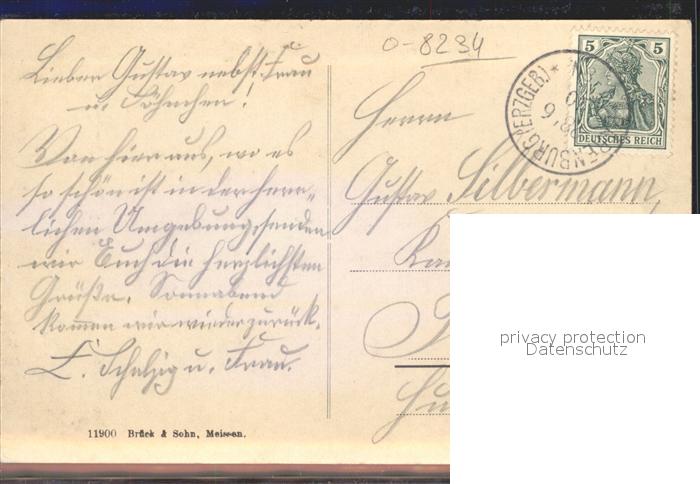 o-8234
Lieber Gustav nebst Frau
u. Söhnchen!
Von hier aus, wo es
so schön ist in der herr-
lichen Umgebung, senden
wir Euch die herzlichsten
Grüße. Sonnabend
kommen wir wieder zurück.
E. u. Frau.
Herrn
Gustav Silbermann,
5 5
DEUTSCHES REICH
(ERZGEB.)
privacy protection
Datenschutz
11900 Brück & Sohn, Meissen.